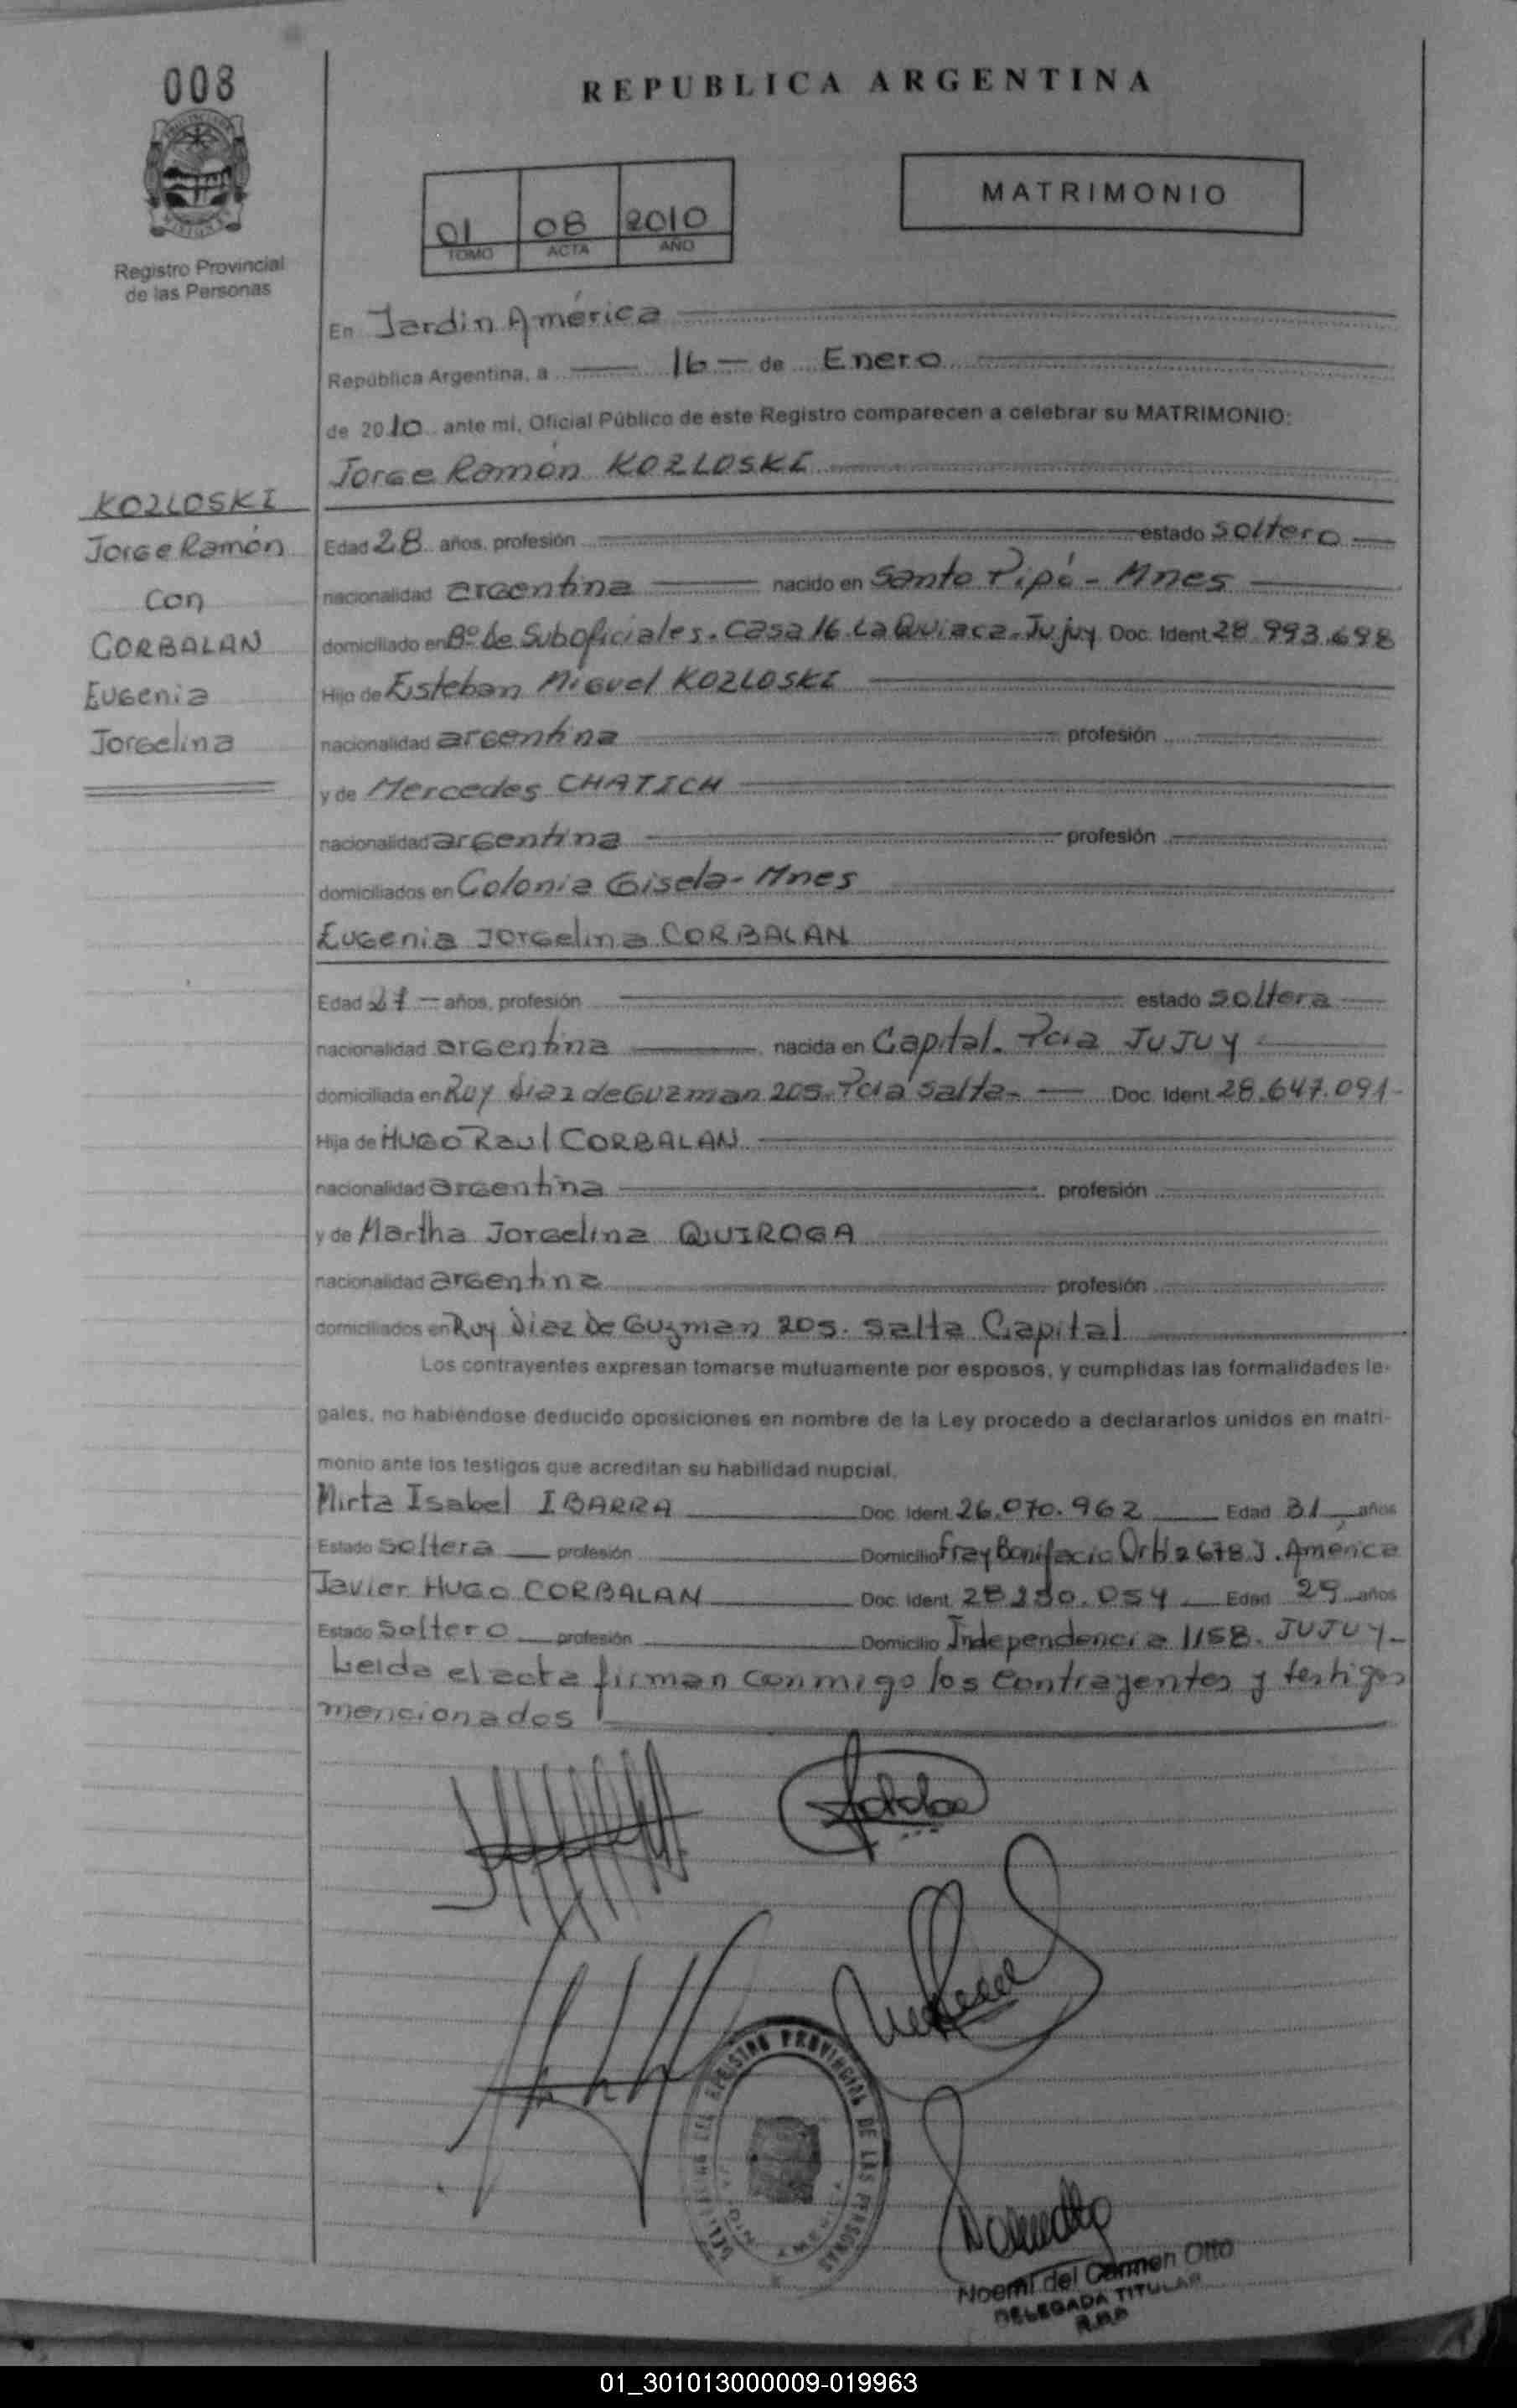 008
REPUBLICA ARGENTINA
MATRIMONIO
01 08 2010
TOMO ACTA AÑO
Registro Provincial
de las Personas
En Jardin América
República Argentina, a 16 de Enero
de 2010 ante mi, Oficial Público de este Registro comparecen a celebrar su MATRIMONIO:
Jorge Ramón KOZLOSKI
KOZLOSKI
Jorge Ramón
con
CORBALAN
Eugenia
Jorgelina
Edad 28 años, profesión estado soltero
nacionalidad argentina nacido en Santo Pipó - Mnes
domiciliado en Bº de Suboficiales. Casa 16. La Quiaca. Jujuy Doc. Ident. 28.993.698
Hijo de Esteban Miguel KOZLOSKI
nacionalidad argentina profesión
y de Mercedes CHATICH
nacionalidad argentina profesión
domiciliados en Colonia Gisela - Mnes
Eugenia Jorgelina CORBALAN
Edad 27 años, profesión estado soltera
nacionalidad argentina nacida en Capital. Pcia JUJUY
domiciliada en Ruy Diaz de Guzman 205. Pcia Salta- Doc. Ident. 28.647.091-
Hija de HUGO Raul CORBALAN
nacionalidad argentina profesión
y de Martha Jorgelina QUIROGA
nacionalidad argentina profesión
domiciliados en Ruy Diaz De Guzman 205. Salta Capital
Los contrayentes expresan tomarse mutuamente por esposos, y cumplidas las formalidades le-
gales, no habiéndose deducido oposiciones en nombre de la Ley procedo a declararlos unidos en matri-
monio ante los testigos que acreditan su habilidad nupcial.
Mirta Isabel IBARRA Doc. Ident. 26.070.962 Edad 31 años
Estado soltera profesión Domicilio Fray Bonifacio Ortiz 678 J. América
Javier HUGO CORBALAN Doc. Ident. 28.250.054 Edad 29 años
Estado Soltero profesión Domicilio Independencia 1158. JUJUY-
Leida el acta firman conmigo los contrayentes y testigos
mencionados
REGISTRO PROVINCIAL DE LAS PERSONAS
Noemi del Carmen Otto
DELEGADA TITULAR
R.P.P
01_301013000009-019963